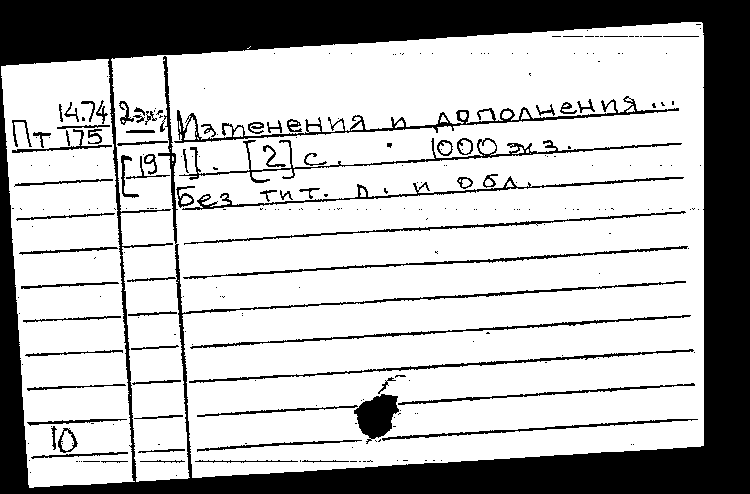 Пт 14.74/175 2 экз Изменения и дополнения...
[1971]. [2] с. 1000 экз.
без тит. л. и обл.
10